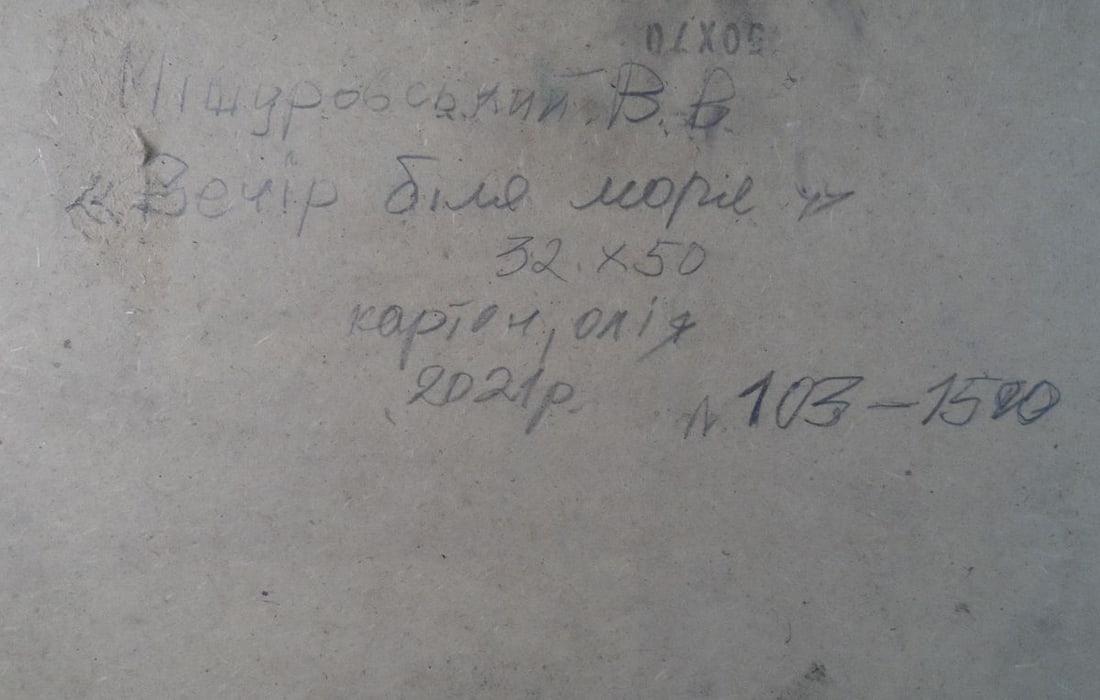 50X70
Мішуровський В.В.
"Вечір біля моря"
32 x 50
картон, олія
2021р.
N 103 – 1500